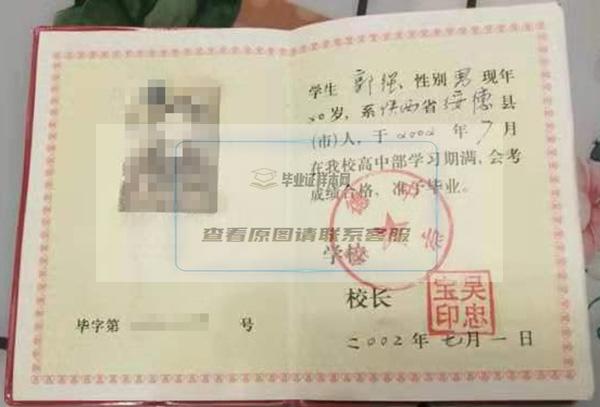 学生 郭强 性别 男 现年
20岁, 系 陕西省 绥德 县
(市)人, 于 2002 年 7 月
在我校高中部学习期满, 会考
成绩合格、准予毕业。
毕业证样本网
查看原图请联系客服
学校
校长
吴忠
宝印
毕字第 号
二002年 七月 一 日